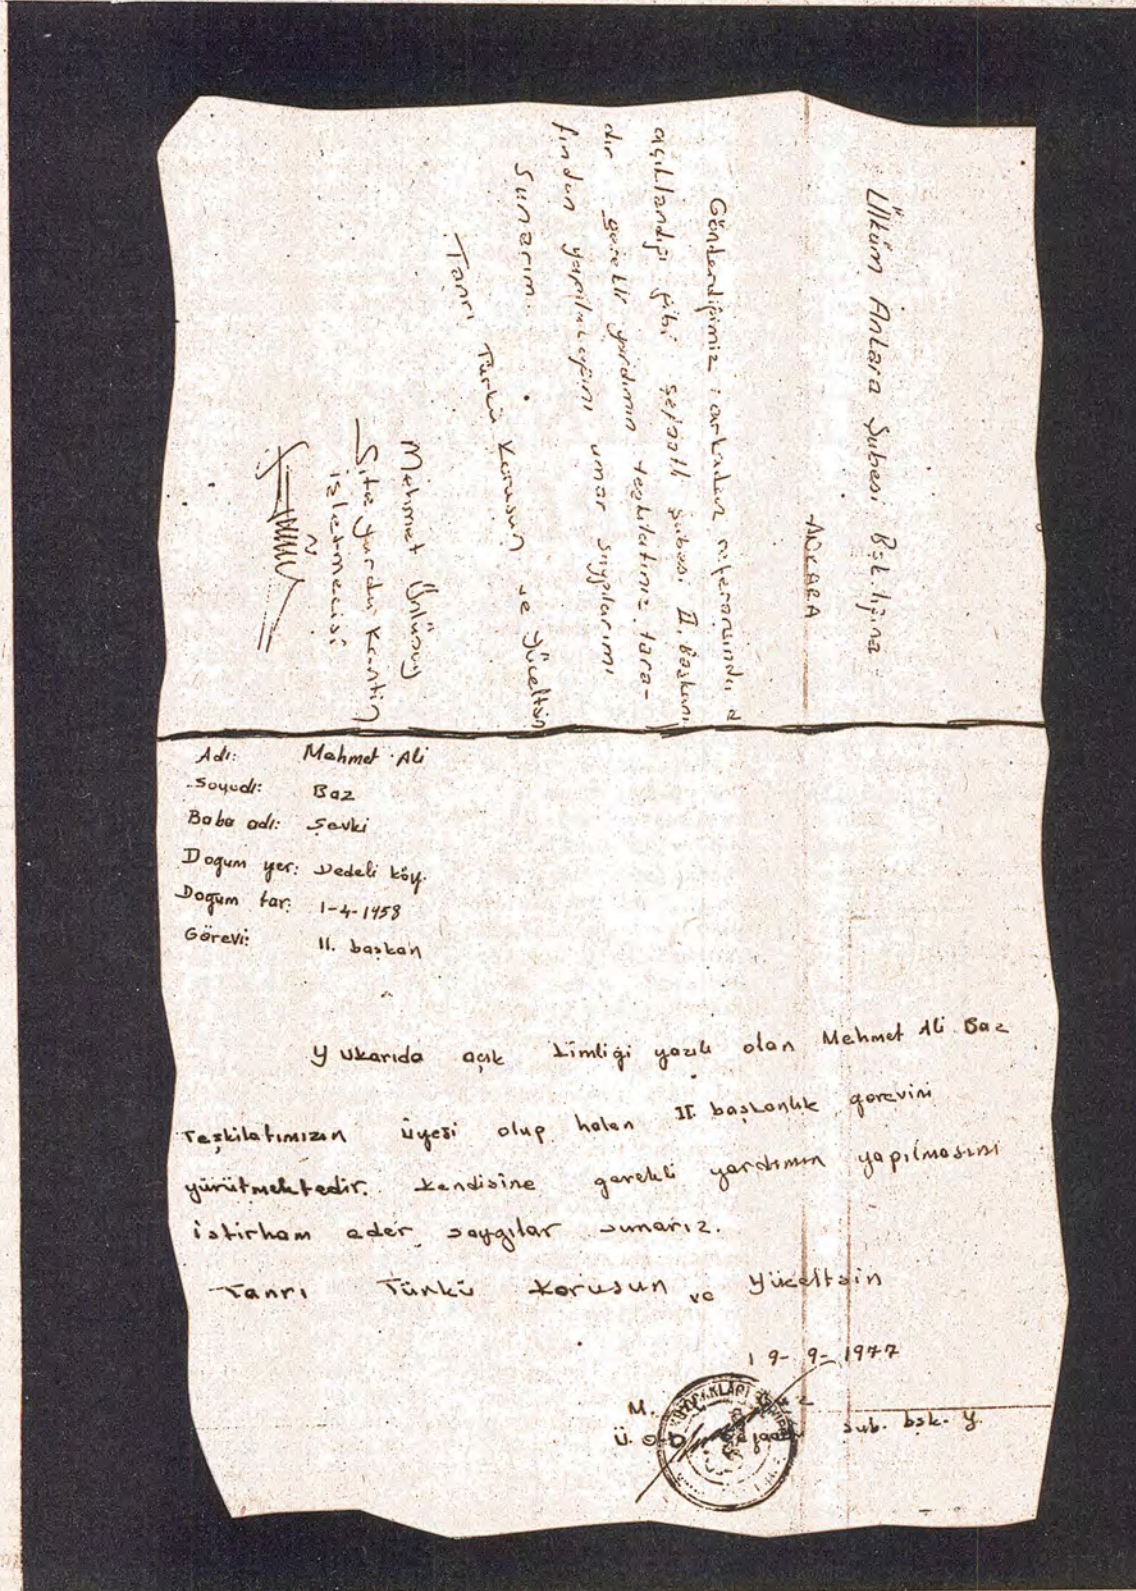 Ülküm Ankara Şubesi Bşk.lığına
ANKARA
Gönderdiğimiz arkadaş referansında
açıklandığı gibi şefaatli şubesi II. Başkanı
dır gerekli yardımın teşkilatınız tara-
fından yapılacağını umar saygılarımı
sunarım.
Tanrı Türkü Korusun ve Yüceltsin
Mehmet Ünlüsoy
Site yurdu Kantin
işletmecisi
Adı: Mehmet Ali
Soyadı: Baz
Baba adı: Şevki
Doğum yer: Dedeli köy.
Doğum tar: 1-4-1958
Görevi: II. başkan
Yukarıda açık kimliği yazılı olan Mehmet Ali Baz
Teşkilatımızın üyesi olup halen II. başkanlık görevini
yürütmektedir. kendisine gerekli yardımın yapılmasını
istirham eder saygılar sunarız.
Tanrı Türkü korusun ve yüceltsin
19-9-1977
M.
Ü. O. D. şub. bşk. y.